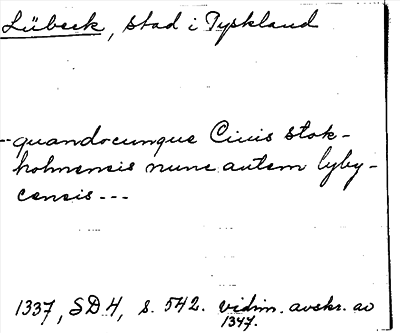 Lübeck, stad i Tyskland
--quandocumque Ciuis stok-
holmensis nunc autem lyby-
censis---
1337, SD 4, s. 542. vidim. avskr. av
1347.